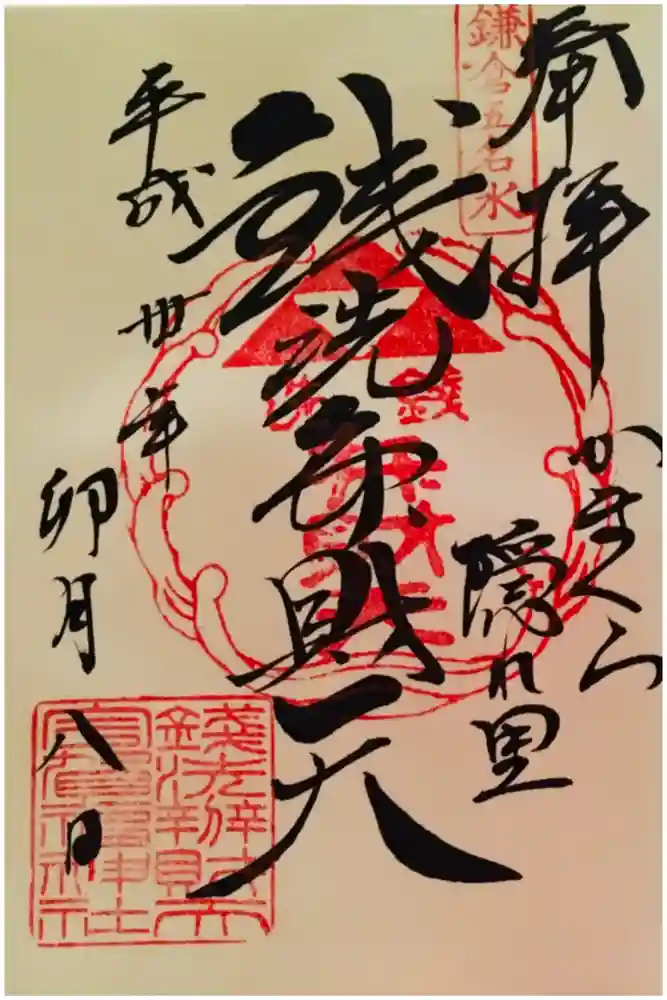 奉拝
かまくら
隠れ里
鎌倉五名水
銭洗弁財天
銭洗弁財天
平成卅年
卯月八日
錢洗辨財天
宇賀福神社